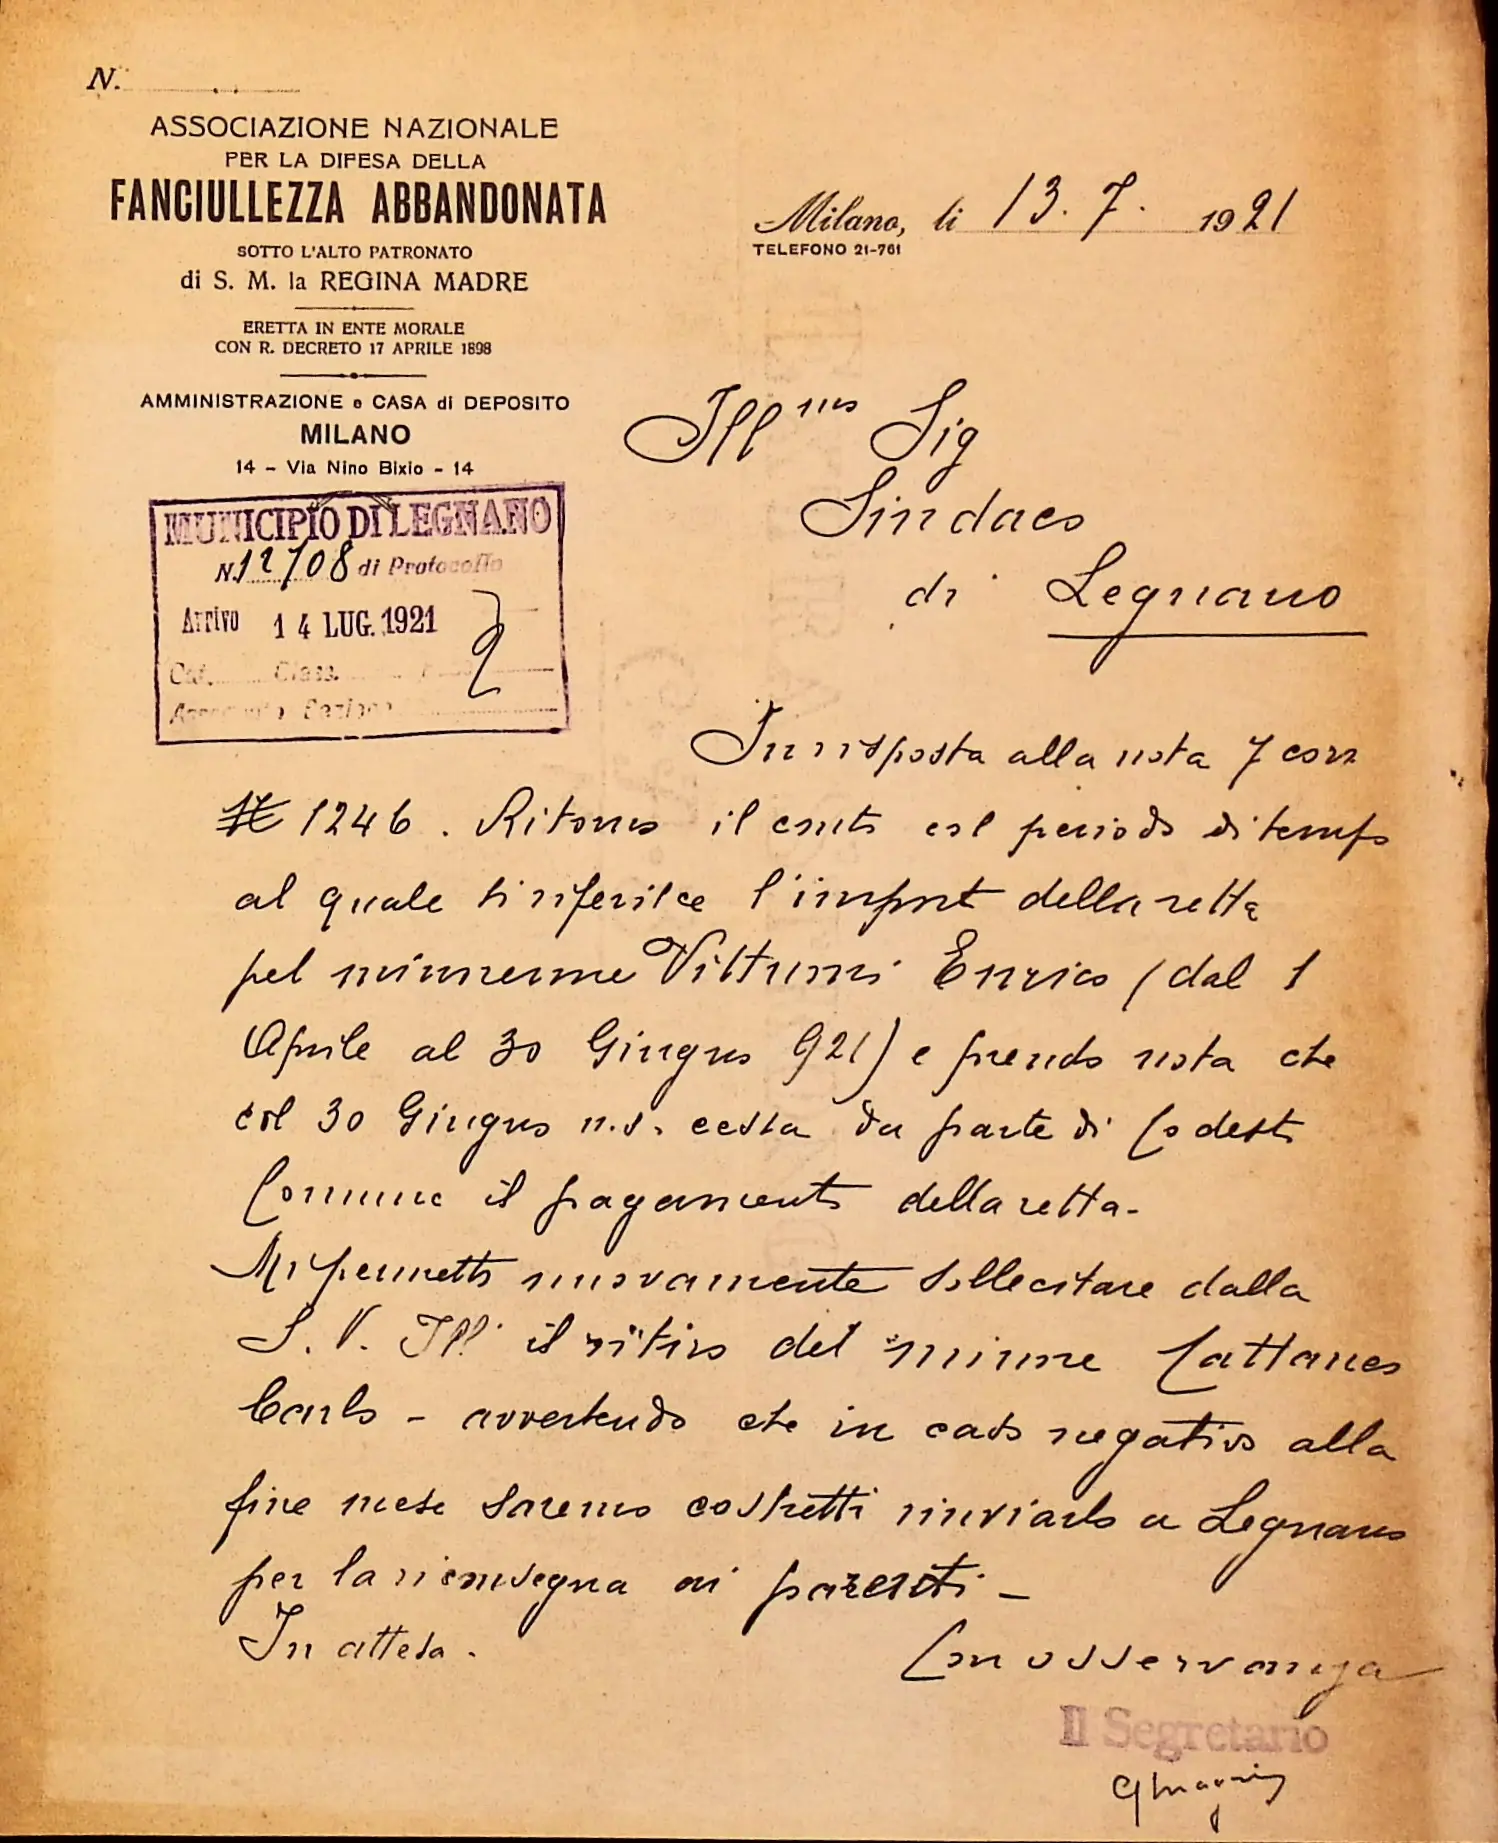 N.
ASSOCIAZIONE NAZIONALE
PER LA DIFESA DELLA
FANCIULLEZZA ABBANDONATA
SOTTO L'ALTO PATRONATO
di S. M. la REGINA MADRE
ERETTA IN ENTE MORALE
CON R. DECRETO 17 APRILE 1898
AMMINISTRAZIONE e CASA di DEPOSITO
MILANO
14 - Via Nino Bixio - 14
Milano, li 13. 7. 1921
TELEFONO 21-761
MUNICIPIO DI LEGNANO
N. 12708 di Protocollo
Arrivo 14 LUG. 1921
Cat. Class.
Ill mo Sig
Sindaco
di Legnano
In risposta alla nota 7 corr
1246. Ritorno il conto col periodo di tempo
al quale si riferisce l'importo della retta
pel minorenne Enrico (dal 1
Aprile al 30 Giugno 921) e prendo nota che
col 30 Giugno u.s. cessa da parte di Codesto
Comune il pagamento della retta-
Mi permetto nuovamente sollecitare dalla
S. V. Ill. il ritiro del minore Cattaneo
Carlo - avvertendo che in caso negativo alla
fine mese saremo costretti rinviarlo a Legnano
per la riconsegna ai parenti -
In attesa.
Con osservanza
Il Segretario